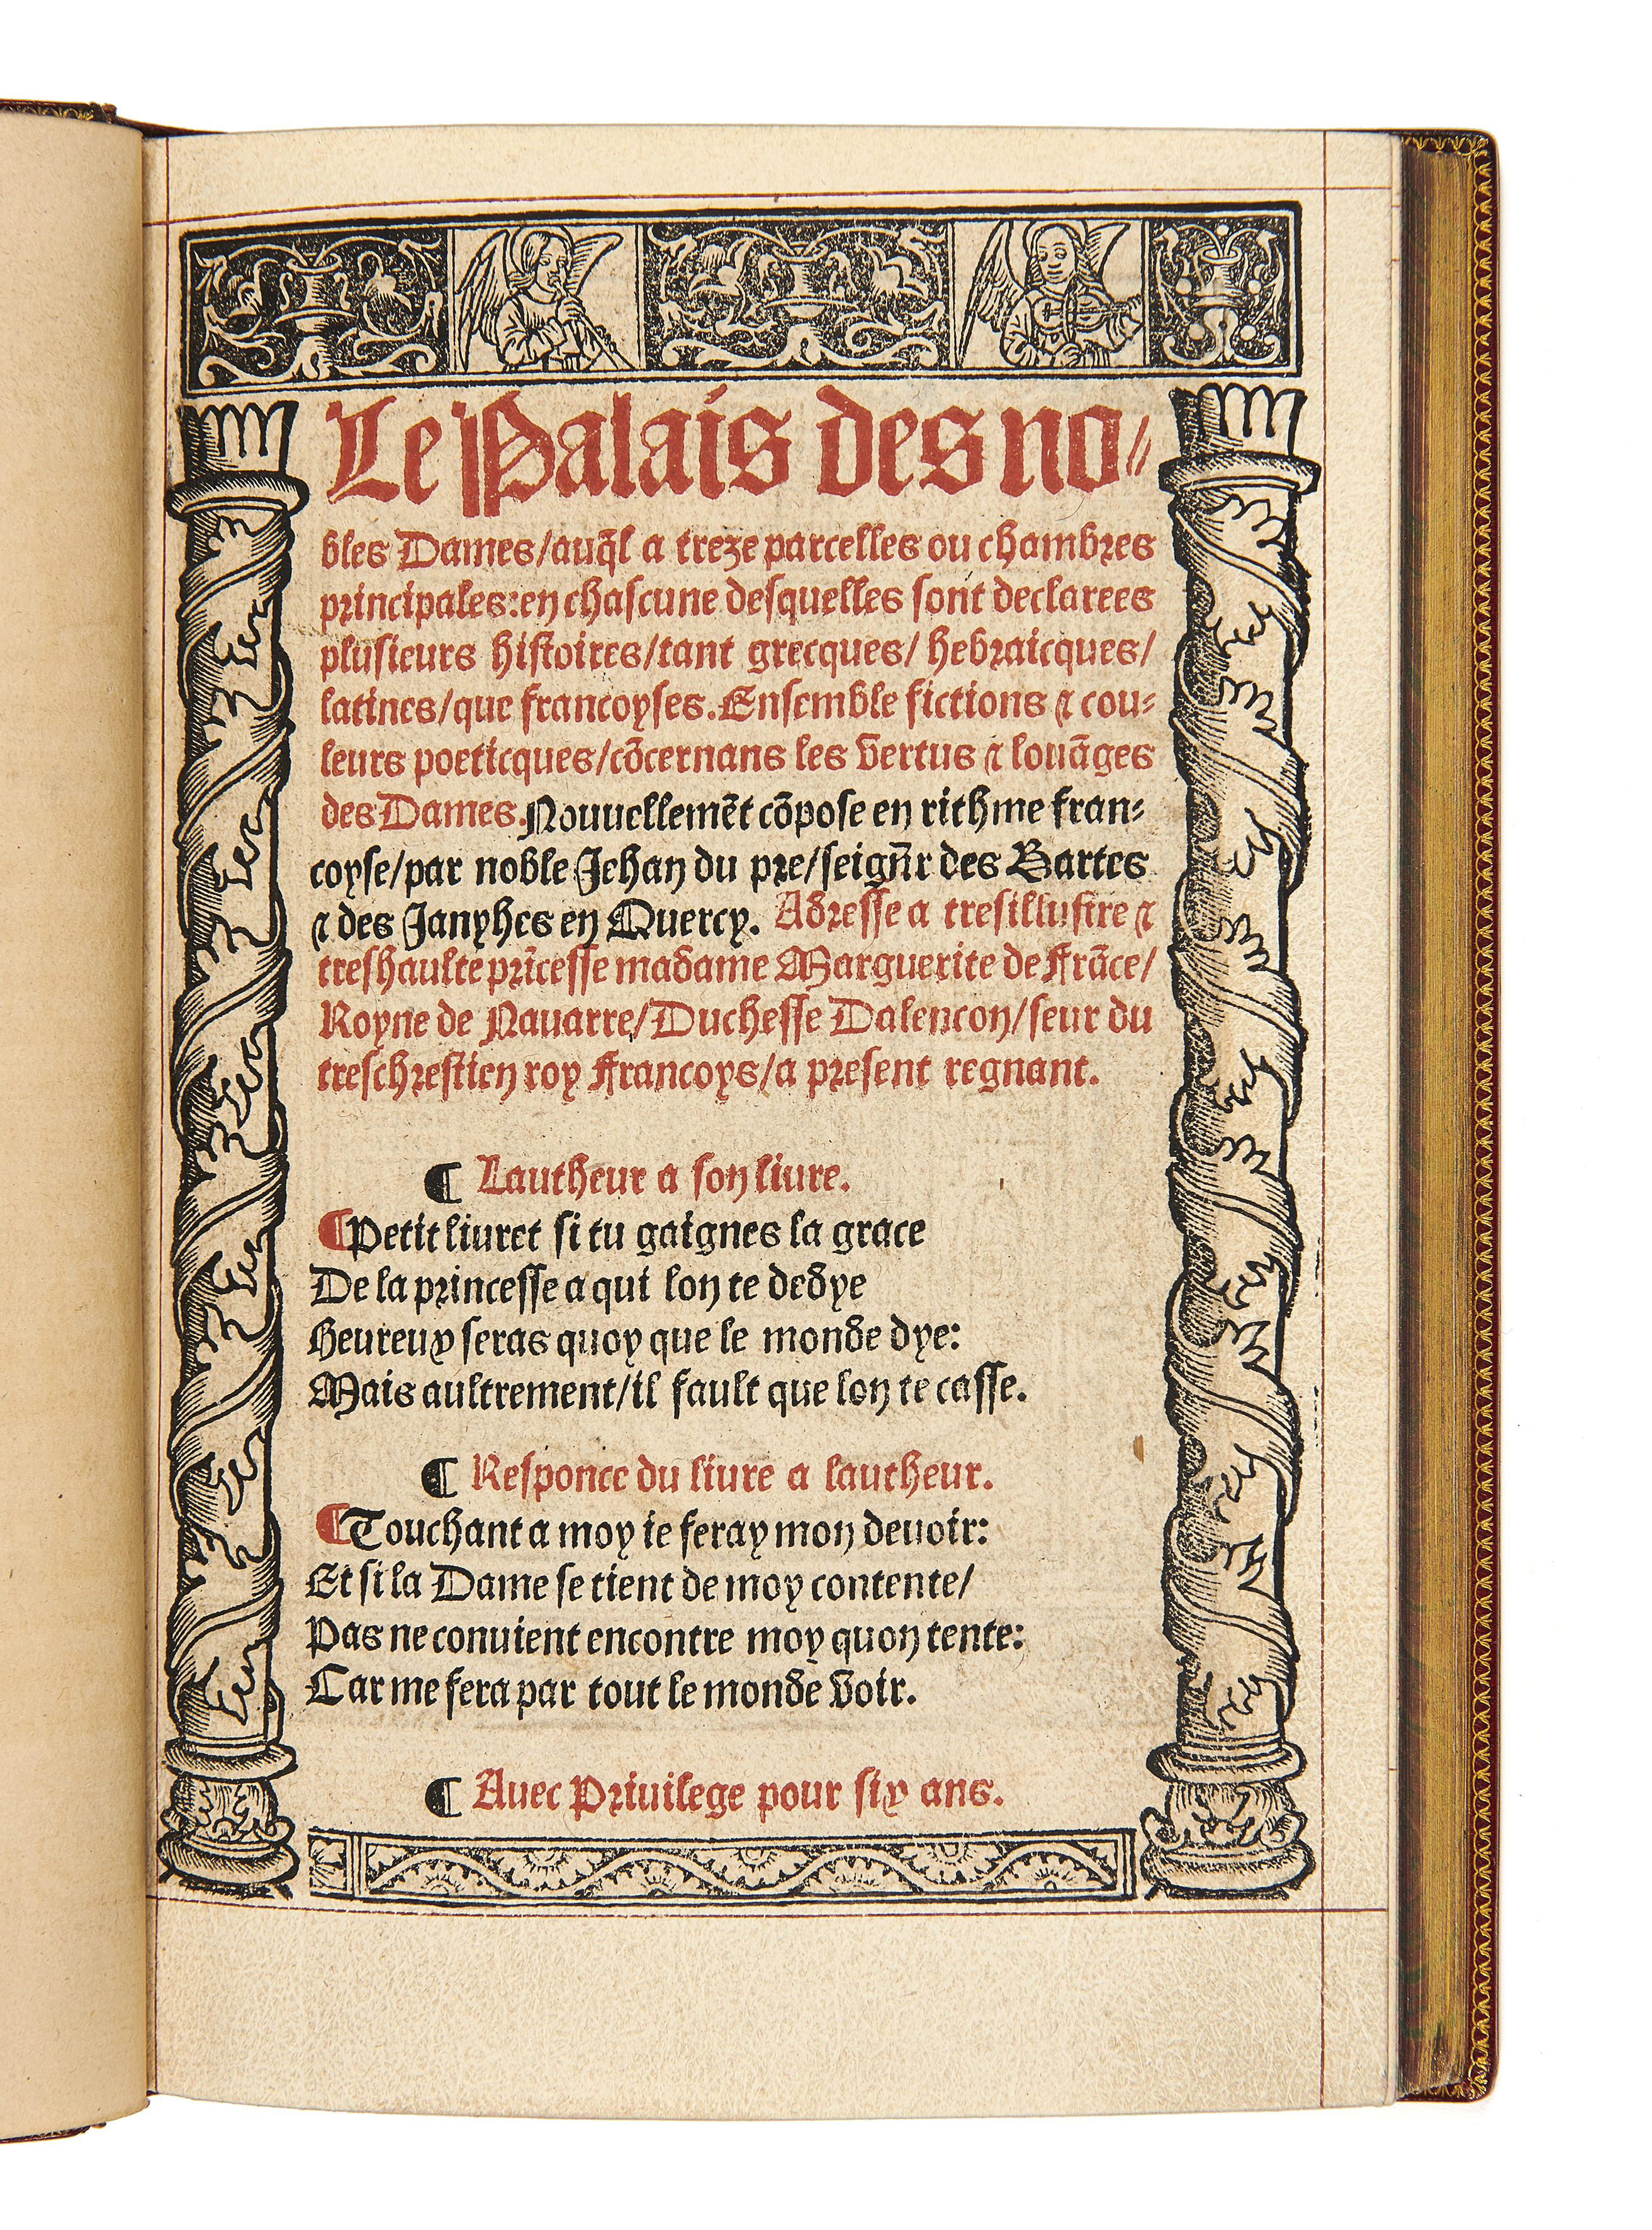 Le Palais des no⸗
bles Dames/auq̃l a treze parcelles ou chambres
principales:en chascune desquelles sont declarees
plusieurs histoires/tant grecques/ hebraicques/
latines/que francoyses.Ensemble fictions & cou⸗
leurs poeticques/cõcernans les vertus & louãges
des Dames.Nouuellemẽt cõpose en rithme fran⸗
coyse/par noble Jehan du pre/seigñr des Bartes
& des Janyhes en Quercy. Adresse a tresillustre &
treshaulte prĩcesse madame Marguerite de Frãce/
Royne de Nauarre/Duchesse Dalencon/seur du
treschrestien roy Francoys/a present regnant.
¶ Lautheur a son liure.
¶Petit liuret si tu gaignes la grace
De la princesse a qui lon te dedye
Heureux seras quoy que le monde dye:
Mais aultrement/il fault que lon te casse.
¶ Responce du liure a lautheur.
¶Touchant a moy ie feray mon deuoir:
Et si la Dame se tient de moy contente/
Pas ne conuient encontre moy quon tente:
Car me fera par tout le monde voir.
¶ Auec Priuilege pour six ans.